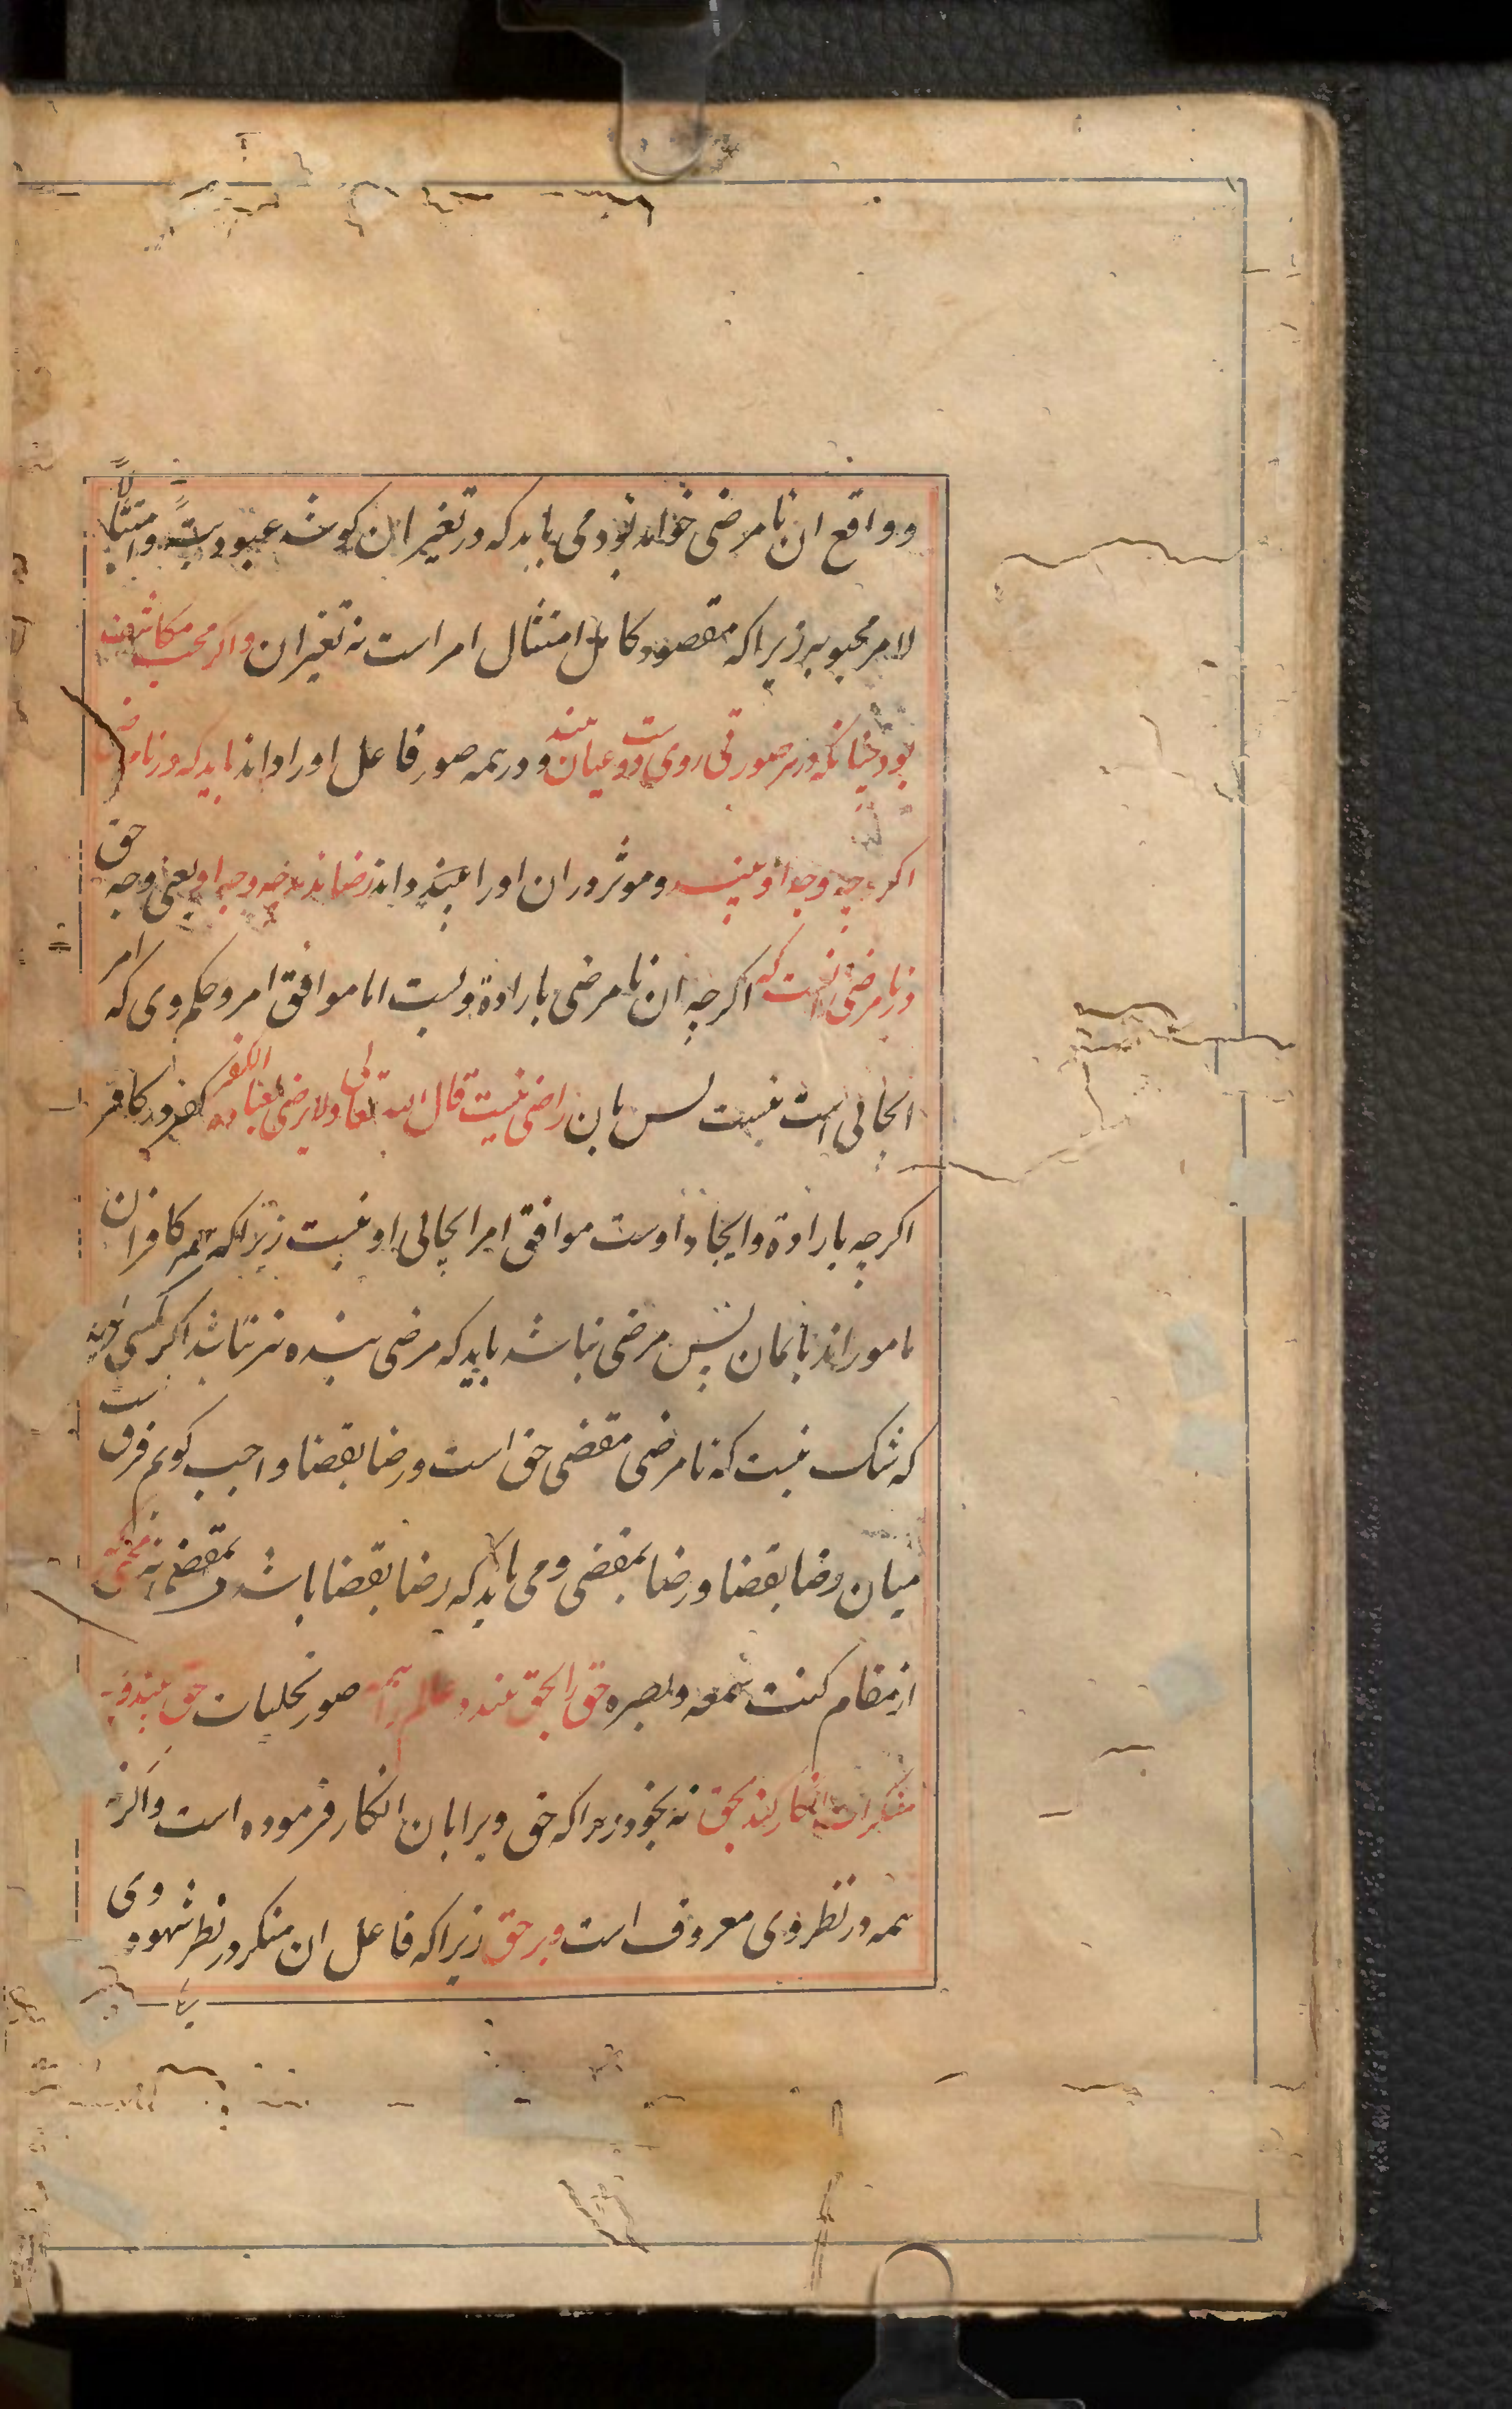 وواقع ان نامرضی خواهد بود می باید که در تغیر ان کوشد عبودیةً وامتثالًا
لامر محبوبه زیرا که مقصود کامل امتثال امر است نه تغیر ان واکر محب مکاشف
بود چنانکه در هر صورتی روی دوست عیان بیند ودر همه صور فاعل او را داند باید که در نامرضی
اکر چه وجه او بیند وموثر در ان او را بیند وداند رضا ندهد چه وجه او یعنی وجه حق
در نامرضی انست که اکر چه ان نامرضی بارادة ویست اما موافق امر وحکم وی که امر
ایجابی است نیست پس بان راضی نیست قال الله تعالی ولا یرضی لعباده الکفر کفر در کافر
اکر چه بارادة وایجاد اوست موافق امر ایجابی او نیست زیرا که همه کافران
مامور اند بایمان پس مرضی نباشد باید که مرضی بنده نیز نباشد اکر کسی کوید
که شک نیست که نامرضی مقضی حق است ورضا بقضا واجب کویم فرقست
میان رضا بقضا ورضا بمقضی ومی باید که رضا بقضا باشد نه بمقضی محقق
از مقام کنت سمعه وبصره حق را بحق بیند وعالم را همه صور تجلیات حق بیند وبر
منکرات انکار کند بحق نه بخود زیرا که حق ویرا بان انکار فرموده است واکر نه
همه در نظر وی معروف است وبر حق زیرا که فاعل ان منکر در نظر شهود وی